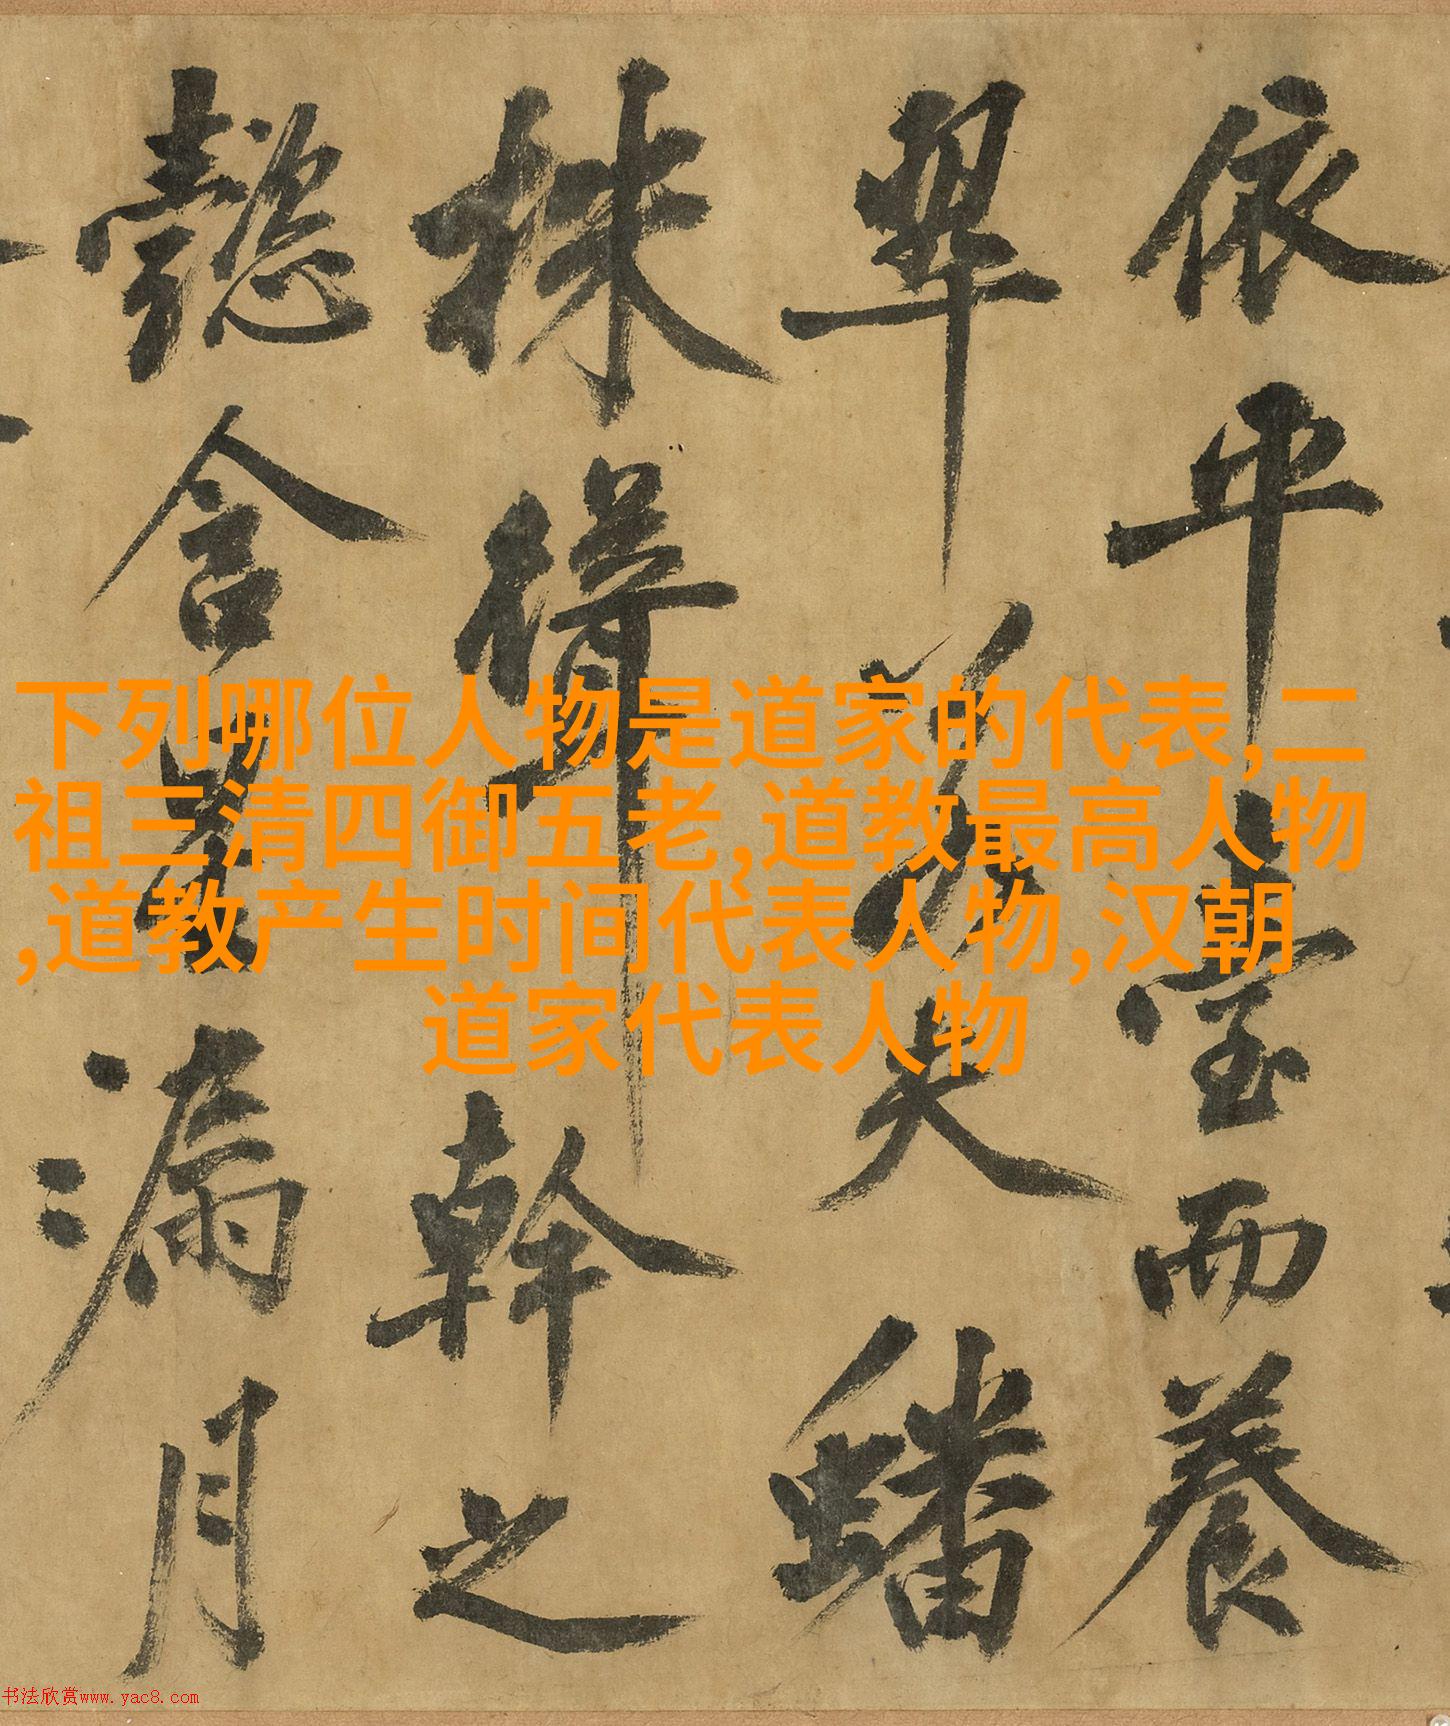 依平臺而養
翠若夫蟠
株幹之
懿含星漏月
下列哪位人物是道家的代表,二
祖三清四御五老,道教最高人物
,道教产生时间代表人物,汉朝
道家代表人物
书法欣赏www.yac8.com